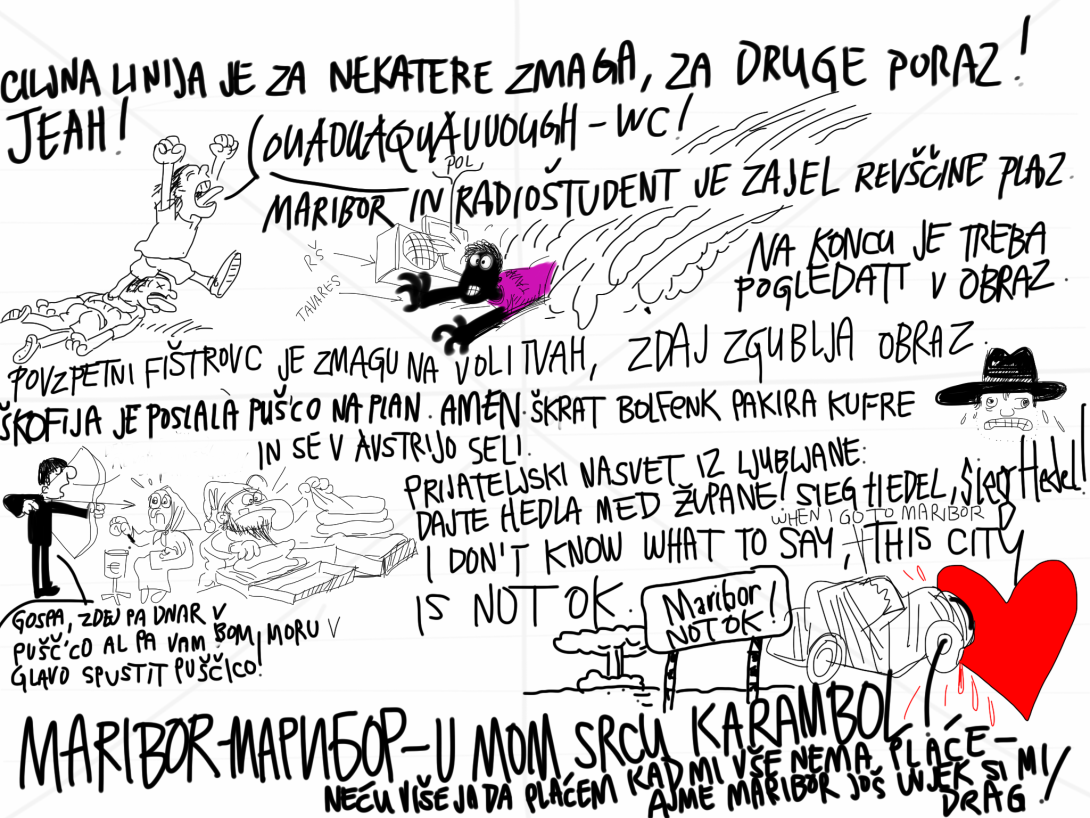 CILJNA LINIJA JE ZA NEKATERE ZMAGA, ZA DRUGE PORAZ!
JEAH!
OUADUAQUAUUOUGH - WC!
POL
MARIBOR IN RADIOŠTUDENT JE ZAJEL REVŠČINE PLAZ.
RŠ
TAVARES
NA KONCU JE TREBA
POGLEDATI V OBRAZ.
POVZPETNI FIŠTROVC JE ZMAGU NA VOLITVAH, ZDAJ ZGUBLJA OBRAZ.
ŠKOFIJA JE POSLALA PUŠ'CO NA PLAN. AMEN. ŠKRAT BOLFENK PAKIRA KUFRE
IN SE V AVSTRIJO SELI.
PRIJATELJSKI NASVET IZ LJUBLJANE:
DAJTE HEDLA MED ŽUPANE! SIEG HEDEL, Sieg Hedel!
WHEN I GO TO MARIBOR
I DON'T KNOW WHAT TO SAY, THIS CITY
IS NOT OK.
Maribor!
NOT OK
GOSPA, ZDEJ PA DNAR V
PUŠČ'CO AL PA VAM BOM MORU V
GLAVO SPUSTIT PUŠČICO!
MARIBOR-МАРИБОР-U MOM SRCU KARAMBOL!
NEĆU VIŠE JA DA PLAĆEM KAD MI VŠE NEMA PLAĆE-
AJME MARIBOR JOŠ UVJEK SI MI
DRAG!